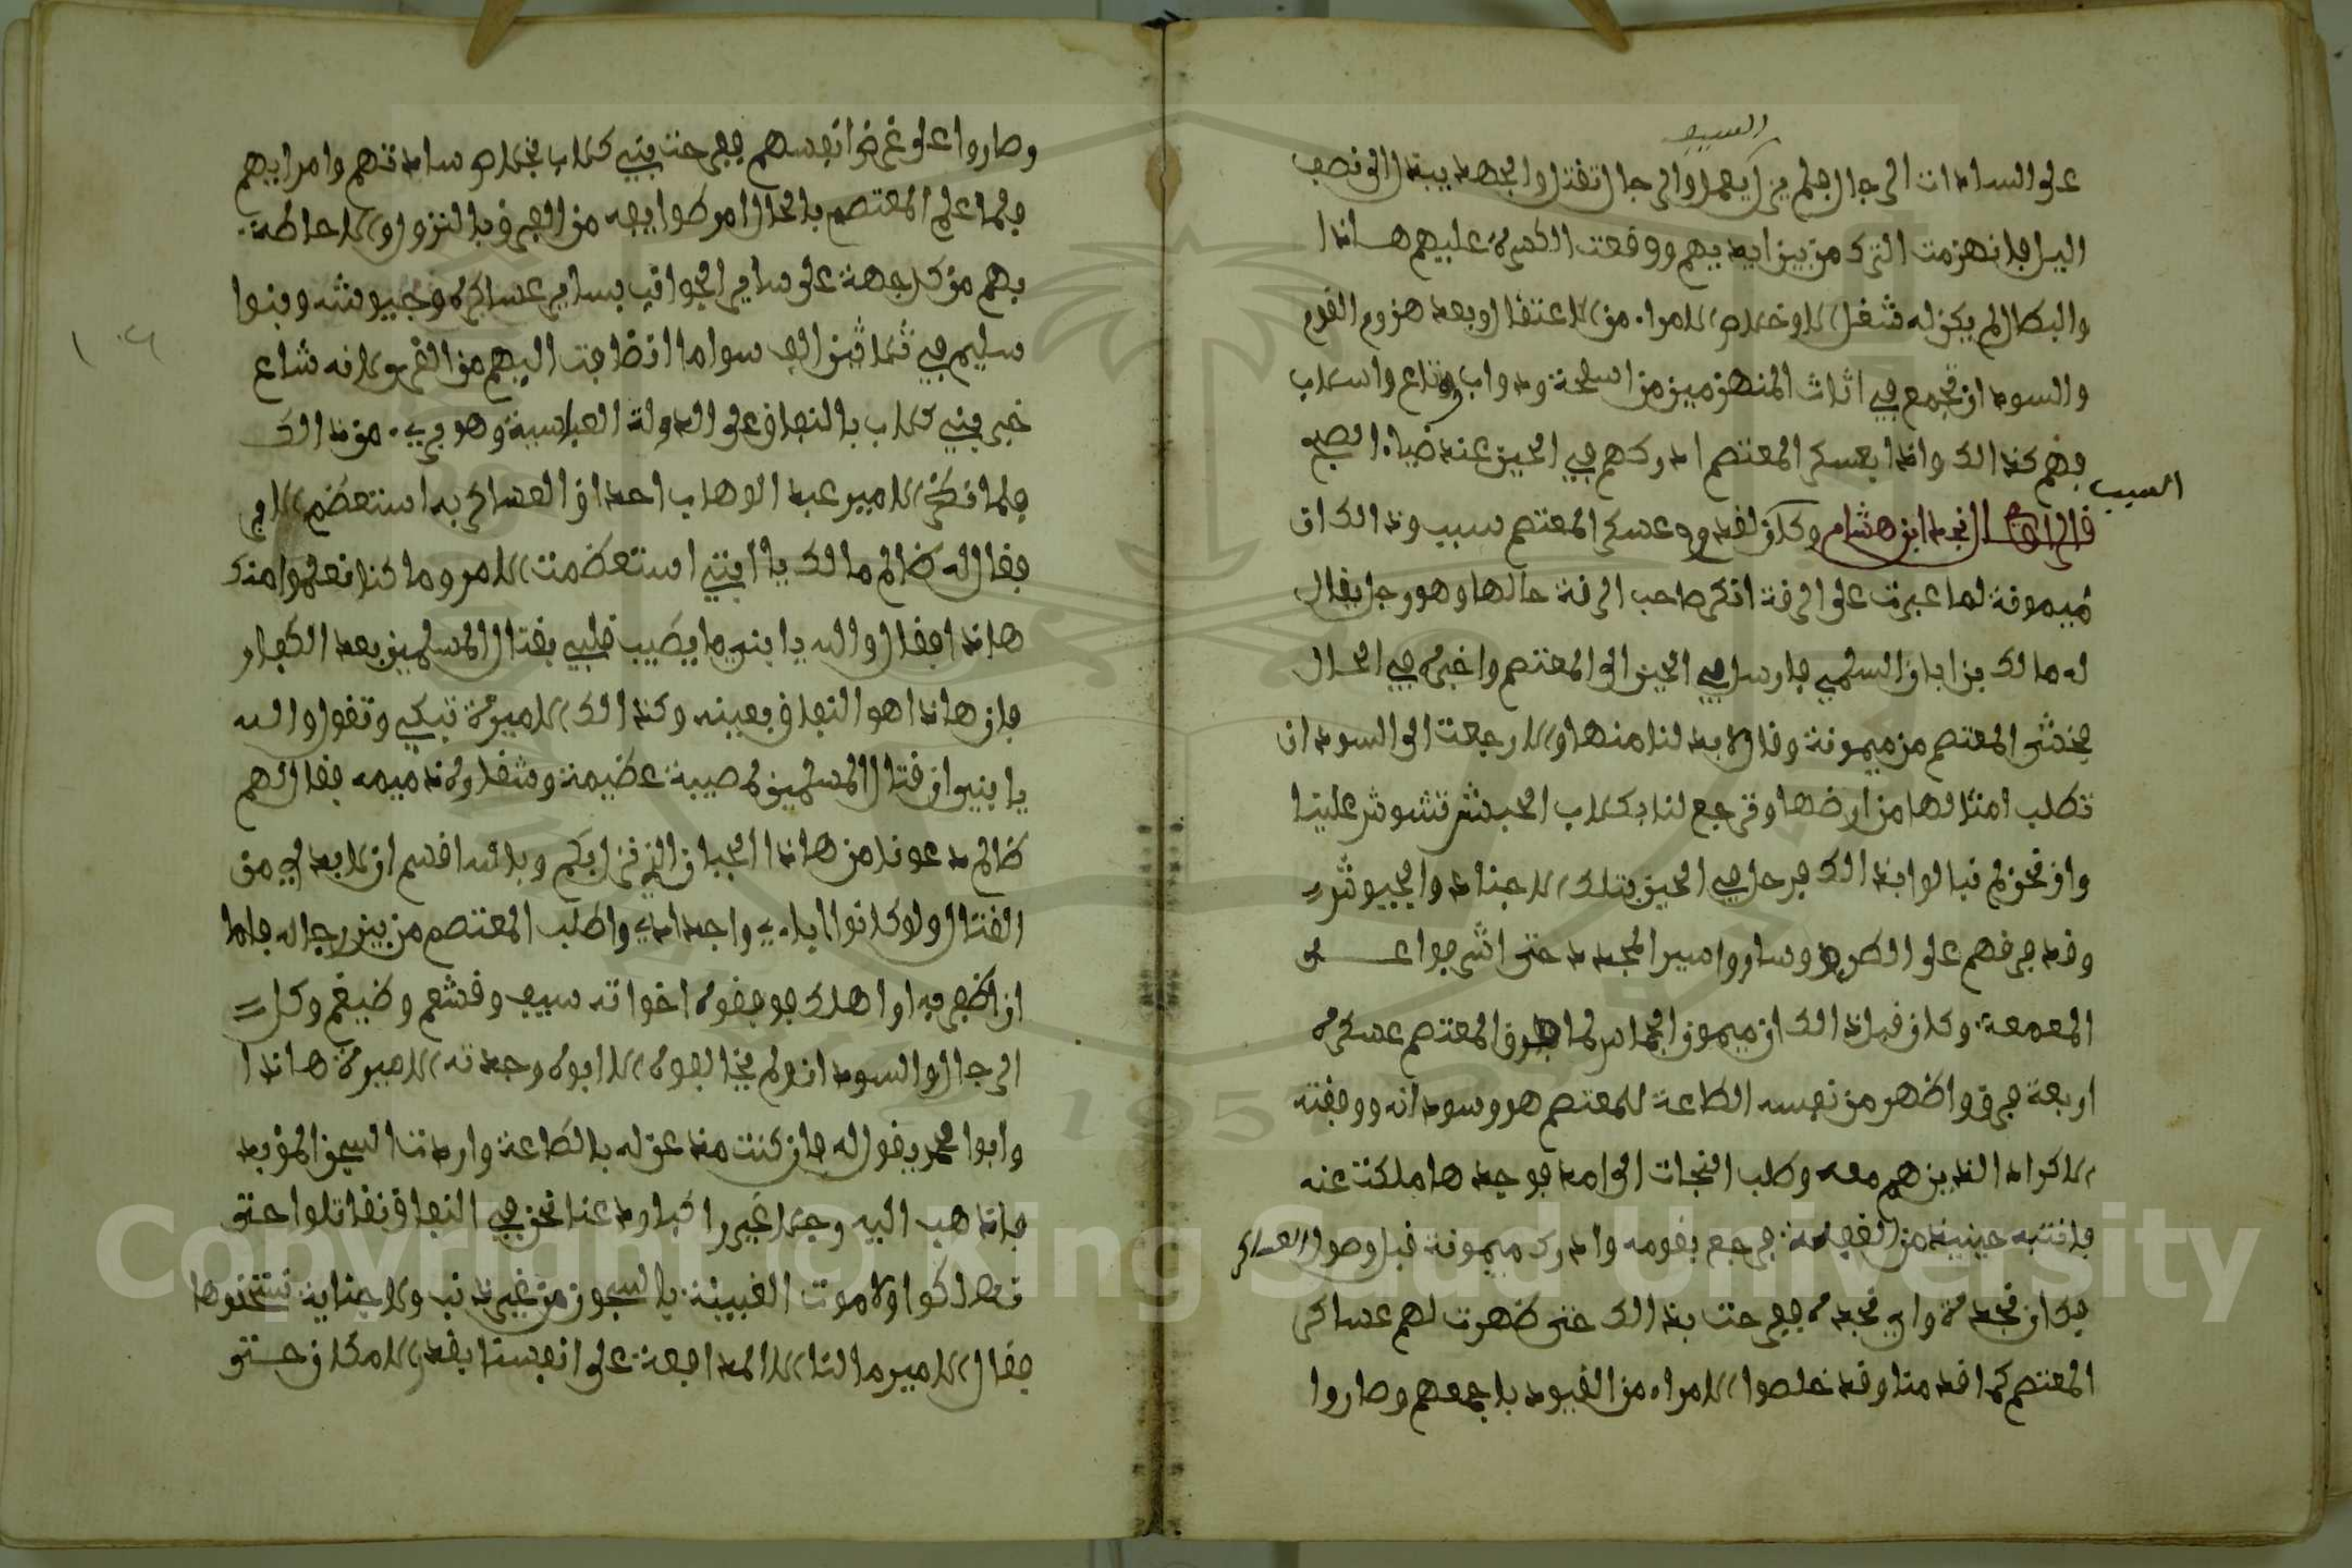 السيف
على السادات الرجال فلم يزل يعمل والرجال تقتل والجهد يبتدل الى نصف
اليل فانهزمت الترك من بين ايديهم ووقعت الكسرة عليهم هاذا
والبطال لم يكن له شغل الا وخلاص الامراء من الاعتقال وبعد هزوم القوم
والسودان تجمع في اثاث المنهزمين من اسلحة ودواب ومتاع واسلاب
فهم كذالك واذا بعسكر المعتصم ادركهم في الحين عند ضياء الصبح
السبب
قال الراوي نجد ابن هشام وكان لقدوم عسكر المعتصم سبب وذالك ان
ميمونة لما عبرت على الرقة انكر صاحب الرقة حالها وهو رجل يقال
له مالك بن ابان السلمي فارسل في الحين الى المعتصم واخبره في الحال
فخشى المعتصم من ميمونة وقال لا بد لنا منها والا رجعت الى السودان
تطلب امثالها من ارضها وترجع لنا بكلاب الحبش تشوش علينا
وان نحن لم نبالوا بذالك فرحل في الحين بتلك الاجناد والجيوش
وقد فرقهم على الطرق وساروا سير المجدد حتى اشرفوا على
المعمعة وكان قبل ذالك ان ميمون الجاس لما فرق المعتصم عسكره
اربعة فرق واظهر من نفسه الطاعة للمعتصم هو وسودانه ووفقته
الاكراد الذين هم معه وطلب النجات الى امد فوجدها ملكت عنه
فانتبه حينيذ من الغفلة فرجع بقومه وادرك ميمونة قبل وصول العساكر
فكان نجدة واي نجدة ففرحت بذالك حتى ظهرت لهم عساكر
المعتصم كما قدمنا وقد خلصوا الامراء من القيود باجمعهم وصاروا
وصاروا على غرض انفسهم ففرحت بني كلاب بخلاص سادتهم وامرايهم
فلما علم المعتصم بالحال امر طوايفه من الفرق بالنزول والاحاطة
بهم من كل جهة على ساير الجوانب بساير عساكره وجيوشه وبنوا
سليم في ثمانين الف سوا ما انظافت اليهم من القرى لانه شاع
خبر بني كلاب بالنفاق على الدولة العباسية وهو بريء من ذالك
فلما نظر الامير عبد الوهاب احداق العساكر به استعظم الامر
فقال له ظالم مالك يا ابتي استعظمت الامر وما كنا نعلموا منك
هاذا فقال والله يا ابني ما يطيب قلبي بقتال المسلمين بعد الكفار
فان هاذا هو النفاق بعينه وكذالك الاميرة تبكي وتقول والله
يا بني ان قتال المسلمين لمصيبة عظيمة ومثقلة ذميمة فقال لهم
ظالم دعونا من هاذا الجبان الذي نزل بكم وبالله اقسم ان لا بد لي من
القتال ولو كانوا اباءي واجدادي واطلب المعتصم من بين رجاله فاما
ان اظفر به او اهلك فوافقوه اخواته سيف وقشعم وضيغم وكل
الرجال والسودان ولم يخالفوه الا ابوه وجدته الاميرة هاذا
وابوا محمد يقول له فان كنت مذعن له بالطاعة واردت السجن المؤبد
فاذهب اليه وحدك غير راكبا ودعنا نحن في النفاق نقاتلوا حتى
نهلكوا ولا موت الغبينة بالسجون من غير ذنب ولا جناية نستحقوها
فقال الامير مالنا الا المدافعة على انفسنا بقدر الامكان حتى